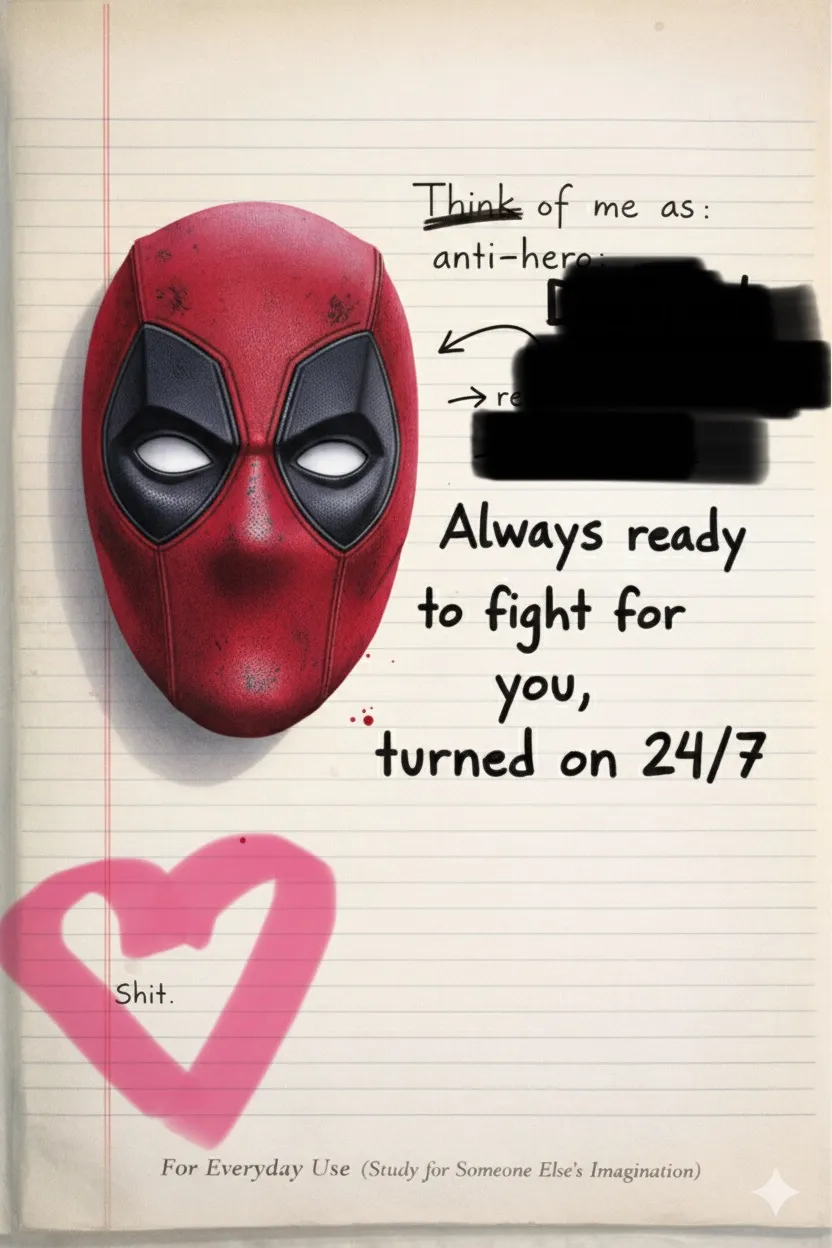 Think of me as:
anti-hero:
Always ready
to fight for
you,
turned on 24/7
Shit.
For Everyday Use (Study for Someone Else's Imagination)